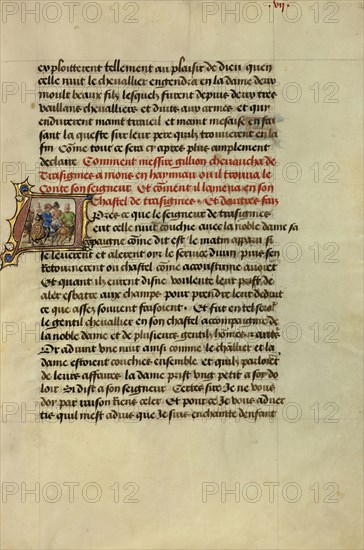 .vij.
exploitterent tellement au plaisir de dieu quen
celle nuit le chevallier engendra en la dame deux
moult beaux filz lesquelz furent depuis deux tres
vaillans chevalliers et duits aux armes et qui
endurerent maint traveil et maint mesaise en fai
sant la queste sur leur pere quilz trouverent en la
fin Comme tout ce sera cy apres plus amplement
declaire Comment messire gillion chevaucha de
Trasignies a mons en haynnau ou il trouva le
Conte son seigneur Et comment il lamena en son
Chastel de trasignies Et dautres fais
Apres ce que le seigneur de trasignies
eut celle nuit couchie avec la noble dame sa
compaigne come dit est le matin apparu si
se leverent et alerent oir le service divin puis sen
Retournerent ou chastel come acoustume avoient
Et quant ilz eurent disne voulente leur prist de
aler esbatre aux champs pour prendre leur deduit
ce que assez souvent faisoient Et fut en tel
le gentil chevallier en son chastel accompaignie de
la noble dame et de plusieurs gentilz homes
Et advint une nuit ainsi comme le chevallier et la
dame estoient couchies ensemble et quilz parloient
de leurs affaires la dame prist ung petit a soy do
loir Si dist a son seigneur Certes sire Je ne vous
doy par raison riens celer Et pource Je vous adver
tis quil mest advis que Je suis enchainte denfant
PHOTO12